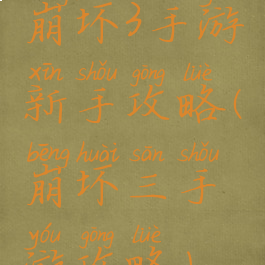 崩坏3手游
xīn shǒu gōng lüè
新手攻略(
bēng huài sān shǒu
崩坏三手
yóu gōng lüè
游攻略)